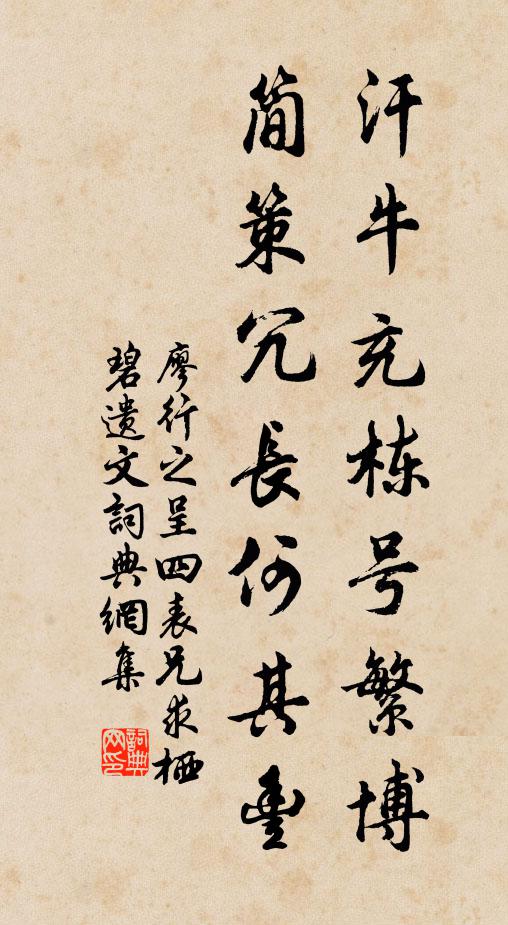 汗牛充栋号繁博
简策冗長何其豐
廖行之呈四表兄求栖
碧遺文詞典網集
詞典網印